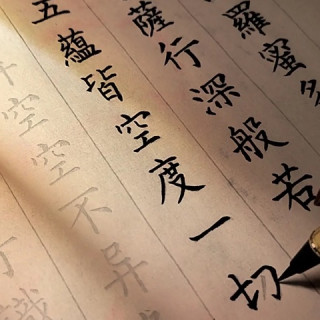 羅蜜多
薩行深般若
五蘊皆空度一切
空空不异
識